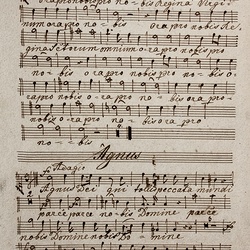 ora pro nobis pro no=bis Regina Regi=
num ora pro no=bis ora pro nobis Re,
gina Sctorum omnium o=ra pro nobis pro
no=bis ora pro nobis pro no=bis o=
ra pro nobis ora pro no=bis ora pro
no=bis
Agnus
Adagio
Agnus Dei qui tollis peccata mundi
parce parce no=bis Domine parce
nobis Domine nobis Do=mine